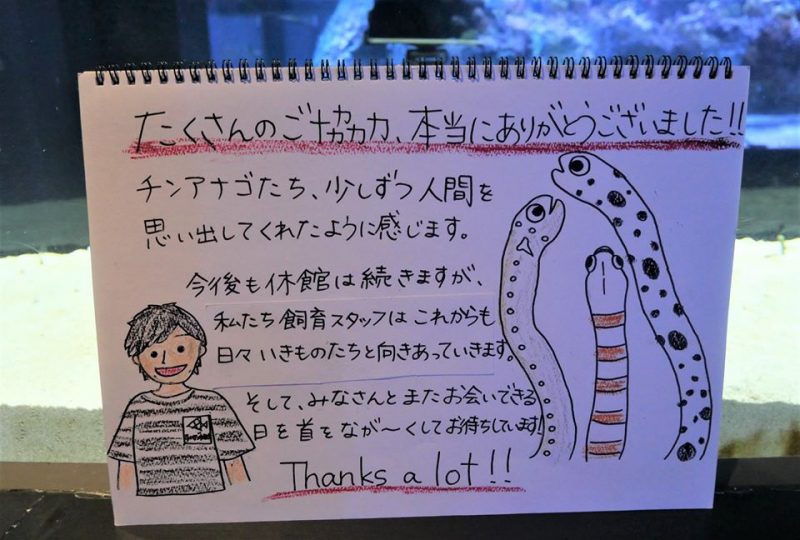 たくさんのご協力、本当にありがとうございました!!
チンアナゴたち、少しずつ人間を
思い出してくれたように感じます。
今後も休館は続きますが、
私たち飼育スタッフはこれからも
日々いきものたちと向きあっていきます。
そして、みなさんとまたお会いできる
日を首をなが〜くしてお待ちしています!
Thanks a lot!!